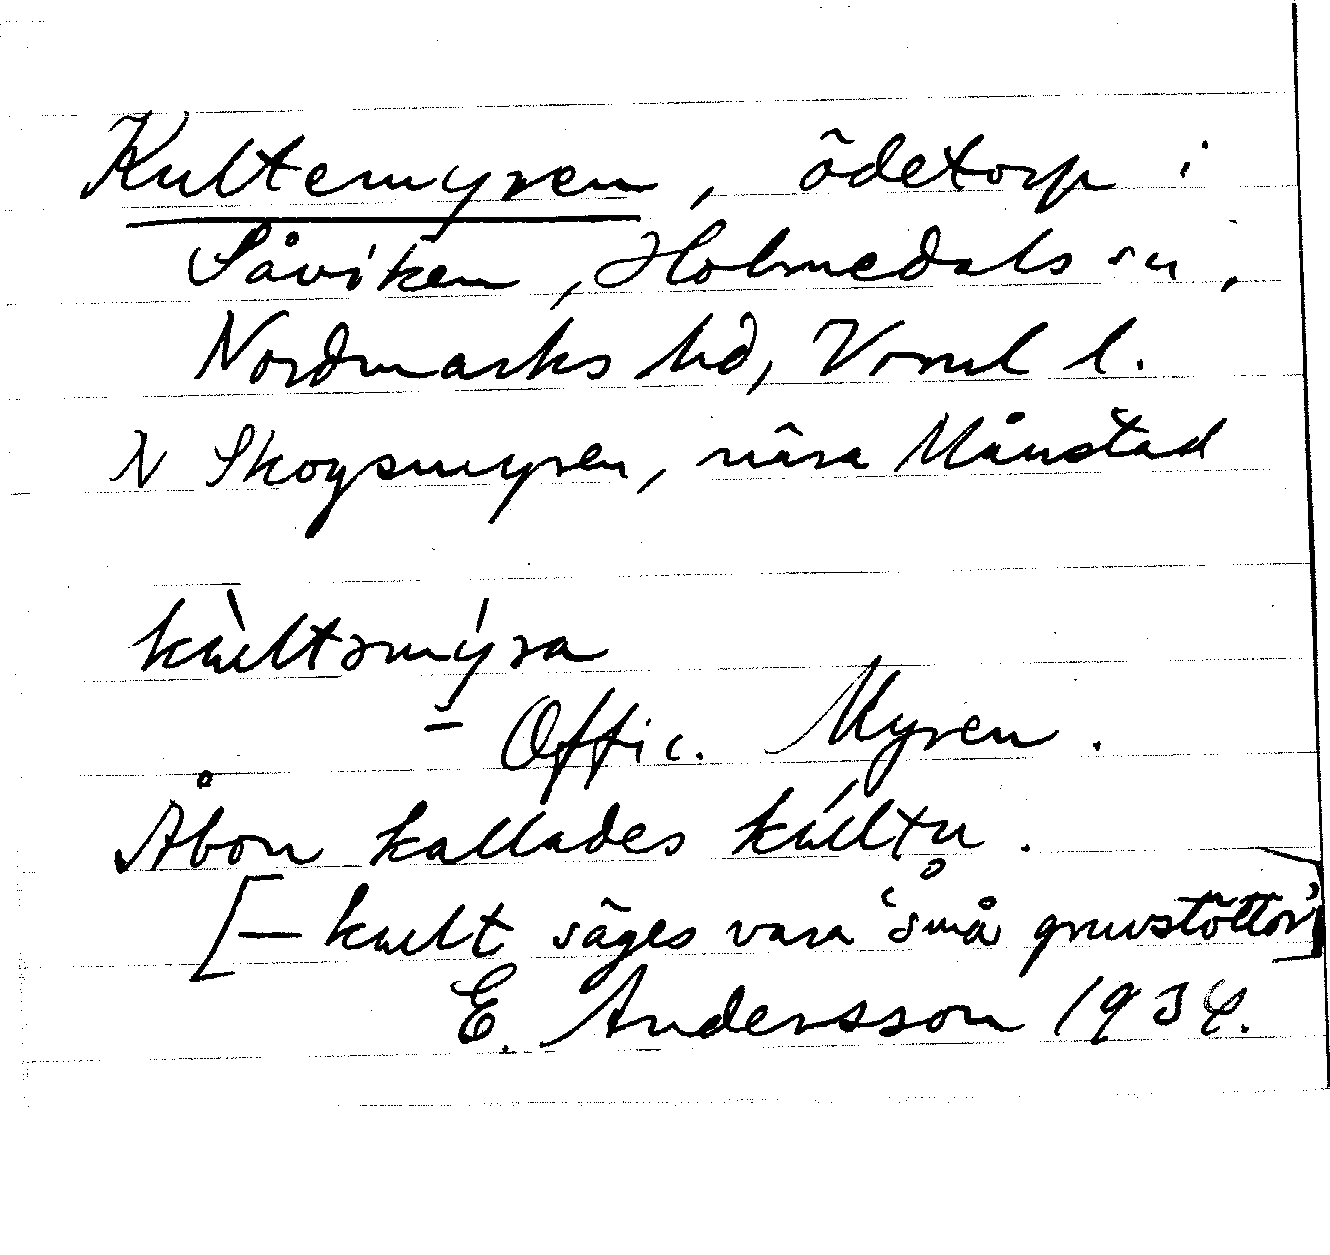 Kultemyren, ödetorp i
Såviken, Holmedals sn,
Nordmarks hd, Vrml l.
N Skogsmyren, nära Månstad
kùltəmýra
- Offic. Myren.
Åbon kallades kúltn.
[- kult säges vara 'små gruvstöttor']
E. Andersson 1934.